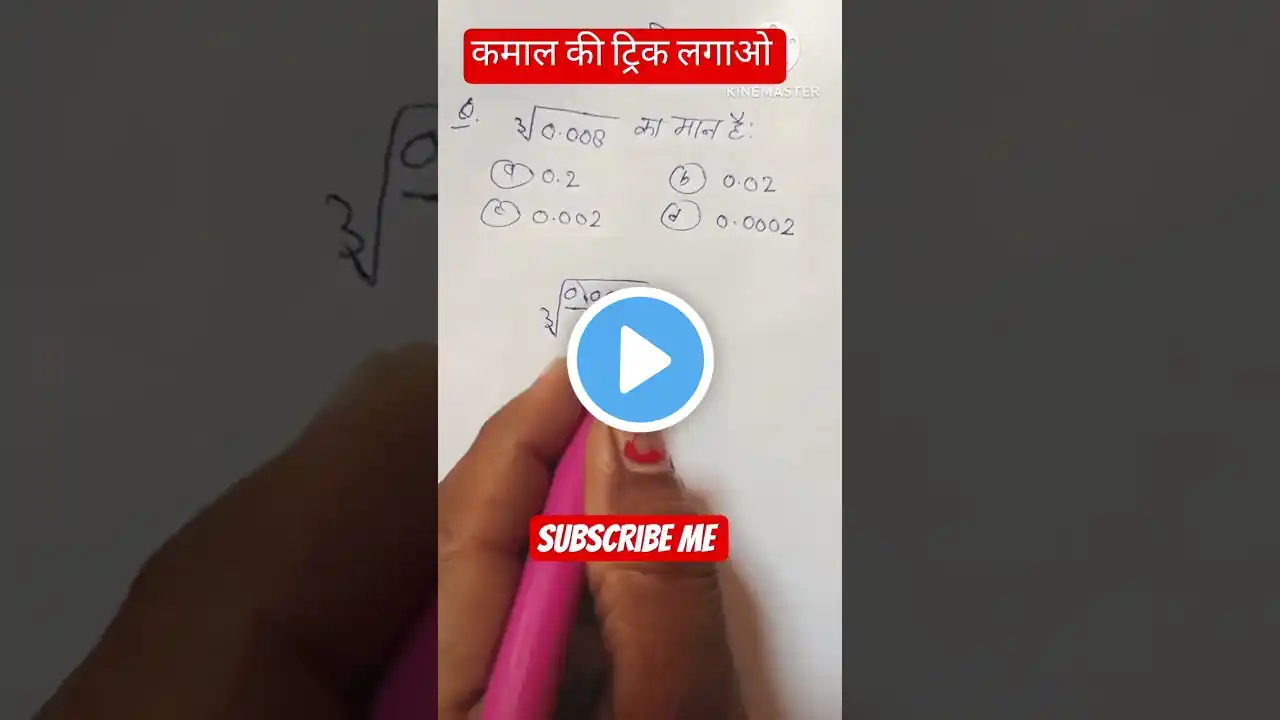 कमाल की ट्रिक लगाओ
KINEMASTER
Q. ∛0.008 का मान है:
(a) 0.2 (b) 0.02
(c) 0.002 (d) 0.0002
SUBSCRIBE ME